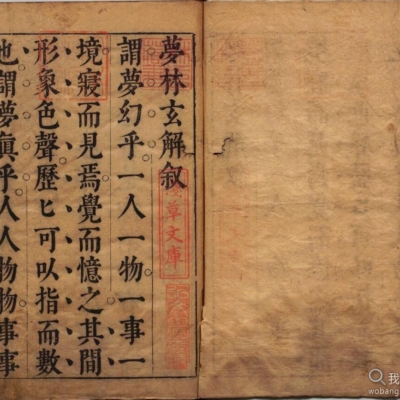 夢林玄解叙
謂夢幻乎一人一物一事一
境寢而見焉覺而憶之其間
形象色聲歷匕可以指而數
也謂夢眞乎人人物物事事
草文庫
我
wobang